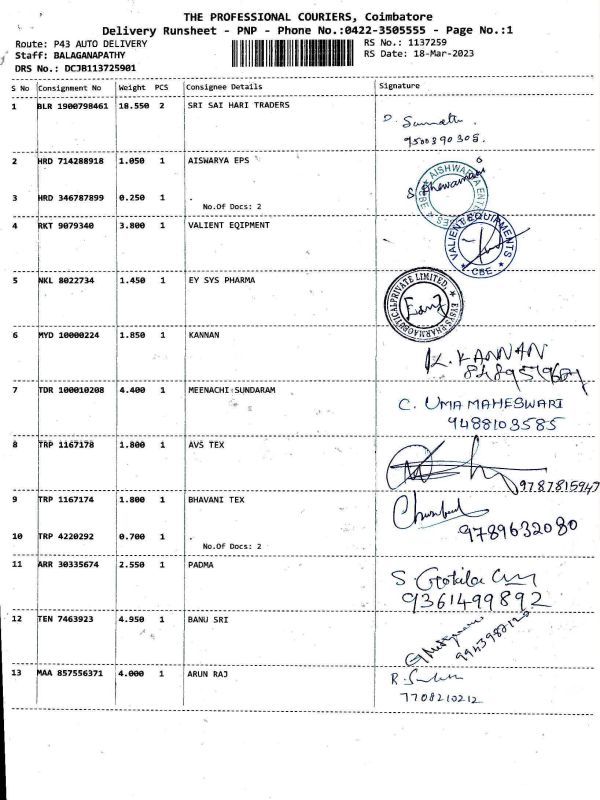 THE PROFESSIONAL COURIERS, Coimbatore
Delivery Runsheet - PNP - Phone No.:0422-3505555 - Page No.:1
Route: P43 AUTO DELIVERY
RS No.: 1137259
Staff: BALAGANAPATHY
RS Date: 18-Mar-2023
DRS No.: DCJB113725901
S No Consignment No Weight PCS Consignee Details Signature
1 BLR 1900798461 18.550 2 SRI SAI HARI TRADERS
9500390305.
2 HRD 714288918 1.050 1 AISWARYA EPS
3 HRD 346787899 0.250 1
No.Of Docs: 2
4 RKT 9079340 3.800 1 VALIENT EQIPMENT
VALIENT EQUIPMENTS
CBE.
5 NKL 8022734 1.450 1 EY SYS PHARMA
6 MYD 10000224 1.850 1 KANNAN
K. KANNAN
7 TDR 100010208 4.400 1 MEENACHI SUNDARAM
C. UMA MAHESWARI
9488103585
8 TRP 1167178 1.800 1 AVS TEX
9787815947
9 TRP 1167174 1.800 1 BHAVANI TEX
9789632080
10 TRP 4220292 0.700 1
No.Of Docs: 2
11 ARR 30335674 2.550 1 PADMA
9361499892
12 TEN 7463923 4.950 1 BANU SRI
13 MAA 857556371 4.000 1 ARUN RAJ
7708210212